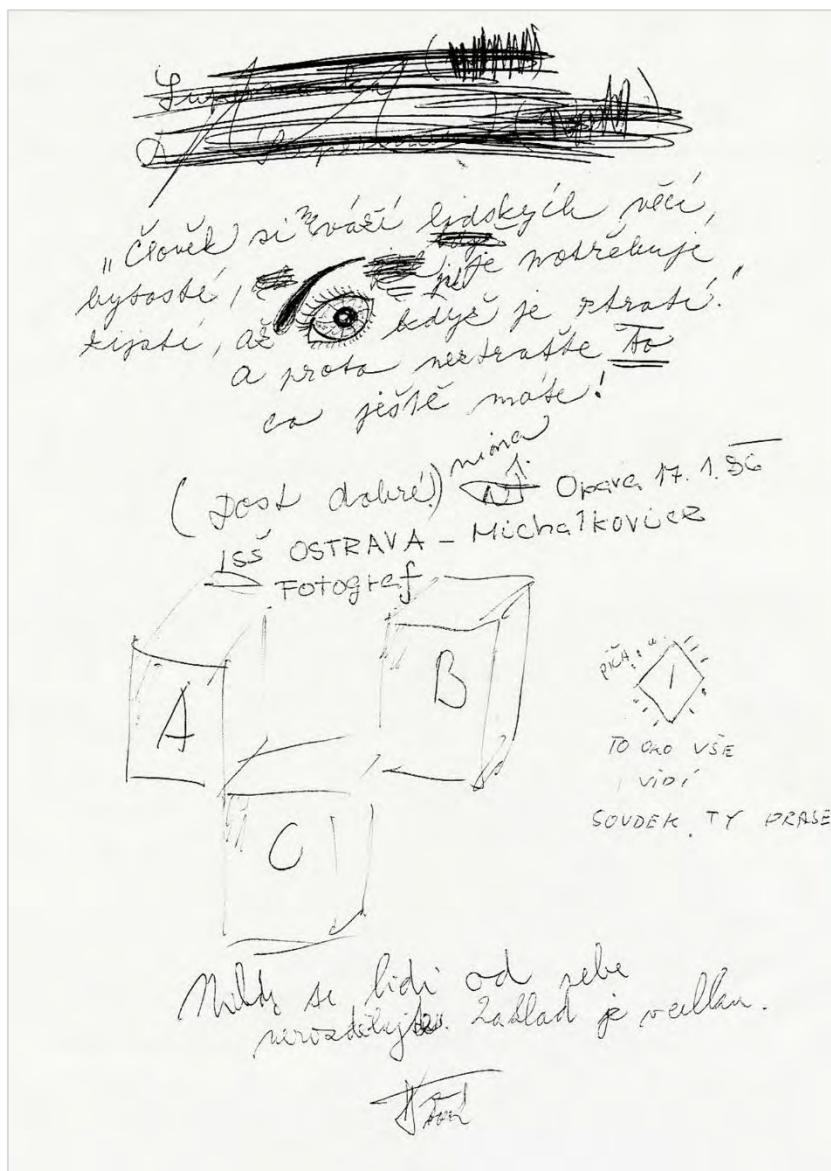 „Člověk si ne váží lidských věcí,
bytostí, je potřebuje
zjistí, až když je ztratí.“
a proto neztraťte to
co ještě máte!
(dost dobré!) nina
Opava 17. 1. 96
ISŠ OSTRAVA - Michalkovice
Fotograf
A
B
PIČA
1
TO OKO VŠE
VIDÍ
SOUDEK, TY PRASE
C
Nikdy se lidi od sebe
nerozdělujte. Základ je v celku.